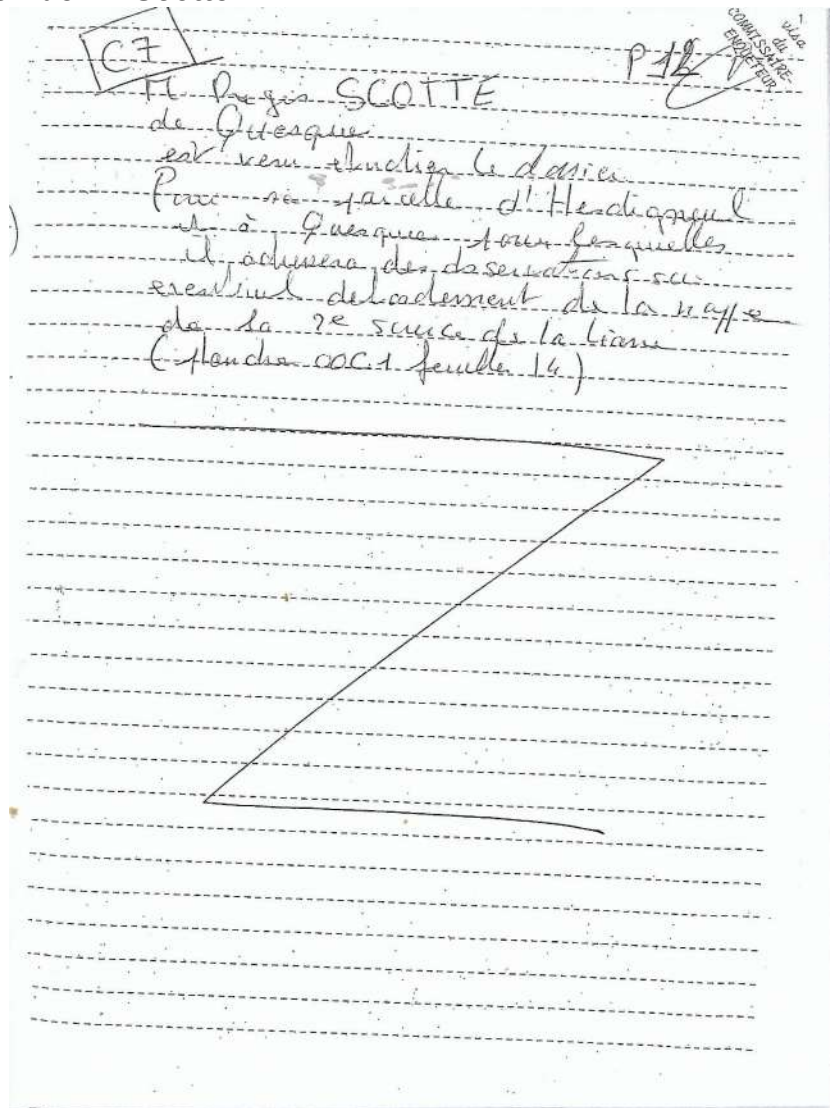 1
visa
du
COMMISSAIRE-
ENQUÊTEUR
C7
P 12
M Regis SCOTTE
de Quesque
est venu etudier le dossier
Pour sa parcelle d'Hesdigneul
et à Quesque pour lesquelles
il achevera des observations sur
eventuel debordement de la nappe
de la 2e source de la Liane
(planche 00C1 feuille 14)